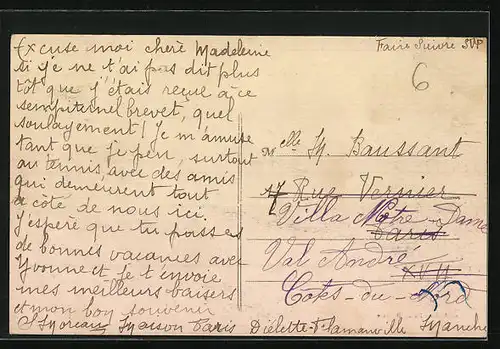 Excuse moi chère Madeleine
si je ne t'ai pas dit plus
tôt que j'étais reçue à ce
sempiternel brevet, quel
soulagement! Je m'amuse
tant que je peu, surtout
au tennis, avec des amis
qui demeurent tout
à côté de nous ici.
J'espère que tu passes
de bonnes vacances avec
Yvonne et je t'envoie
mes meilleurs baisers
et mon bon souvenir
Moreau Maison Paris Dielette-Flamanville Manche
Faire Suivre SVP
6
Melle M. Baussant
17 Rue Vernier
Villa Notre-Dame
Paris
Val André
XVII
Côtes-du-Nord